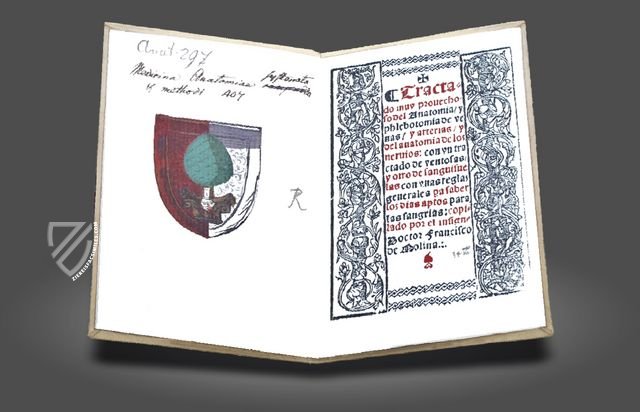 Anat. 297
Medicina Anatomia
y methodi 207
R
ZIEREIS FACSIMILES.COM
✠
¶ Tracta
do muy prouecho
so del Anatomia/ y
phlebotomia de ve
nas/ y arterias/ y
del anatomia de los
neruios: con vn tra
ctado de ventosas/
y otro de sanguisue
las con vnas reglas
generales pa saber
los dias aptos para
las sangrias: copi
lado por el insi en
Doctor Francisco
de Molina:.